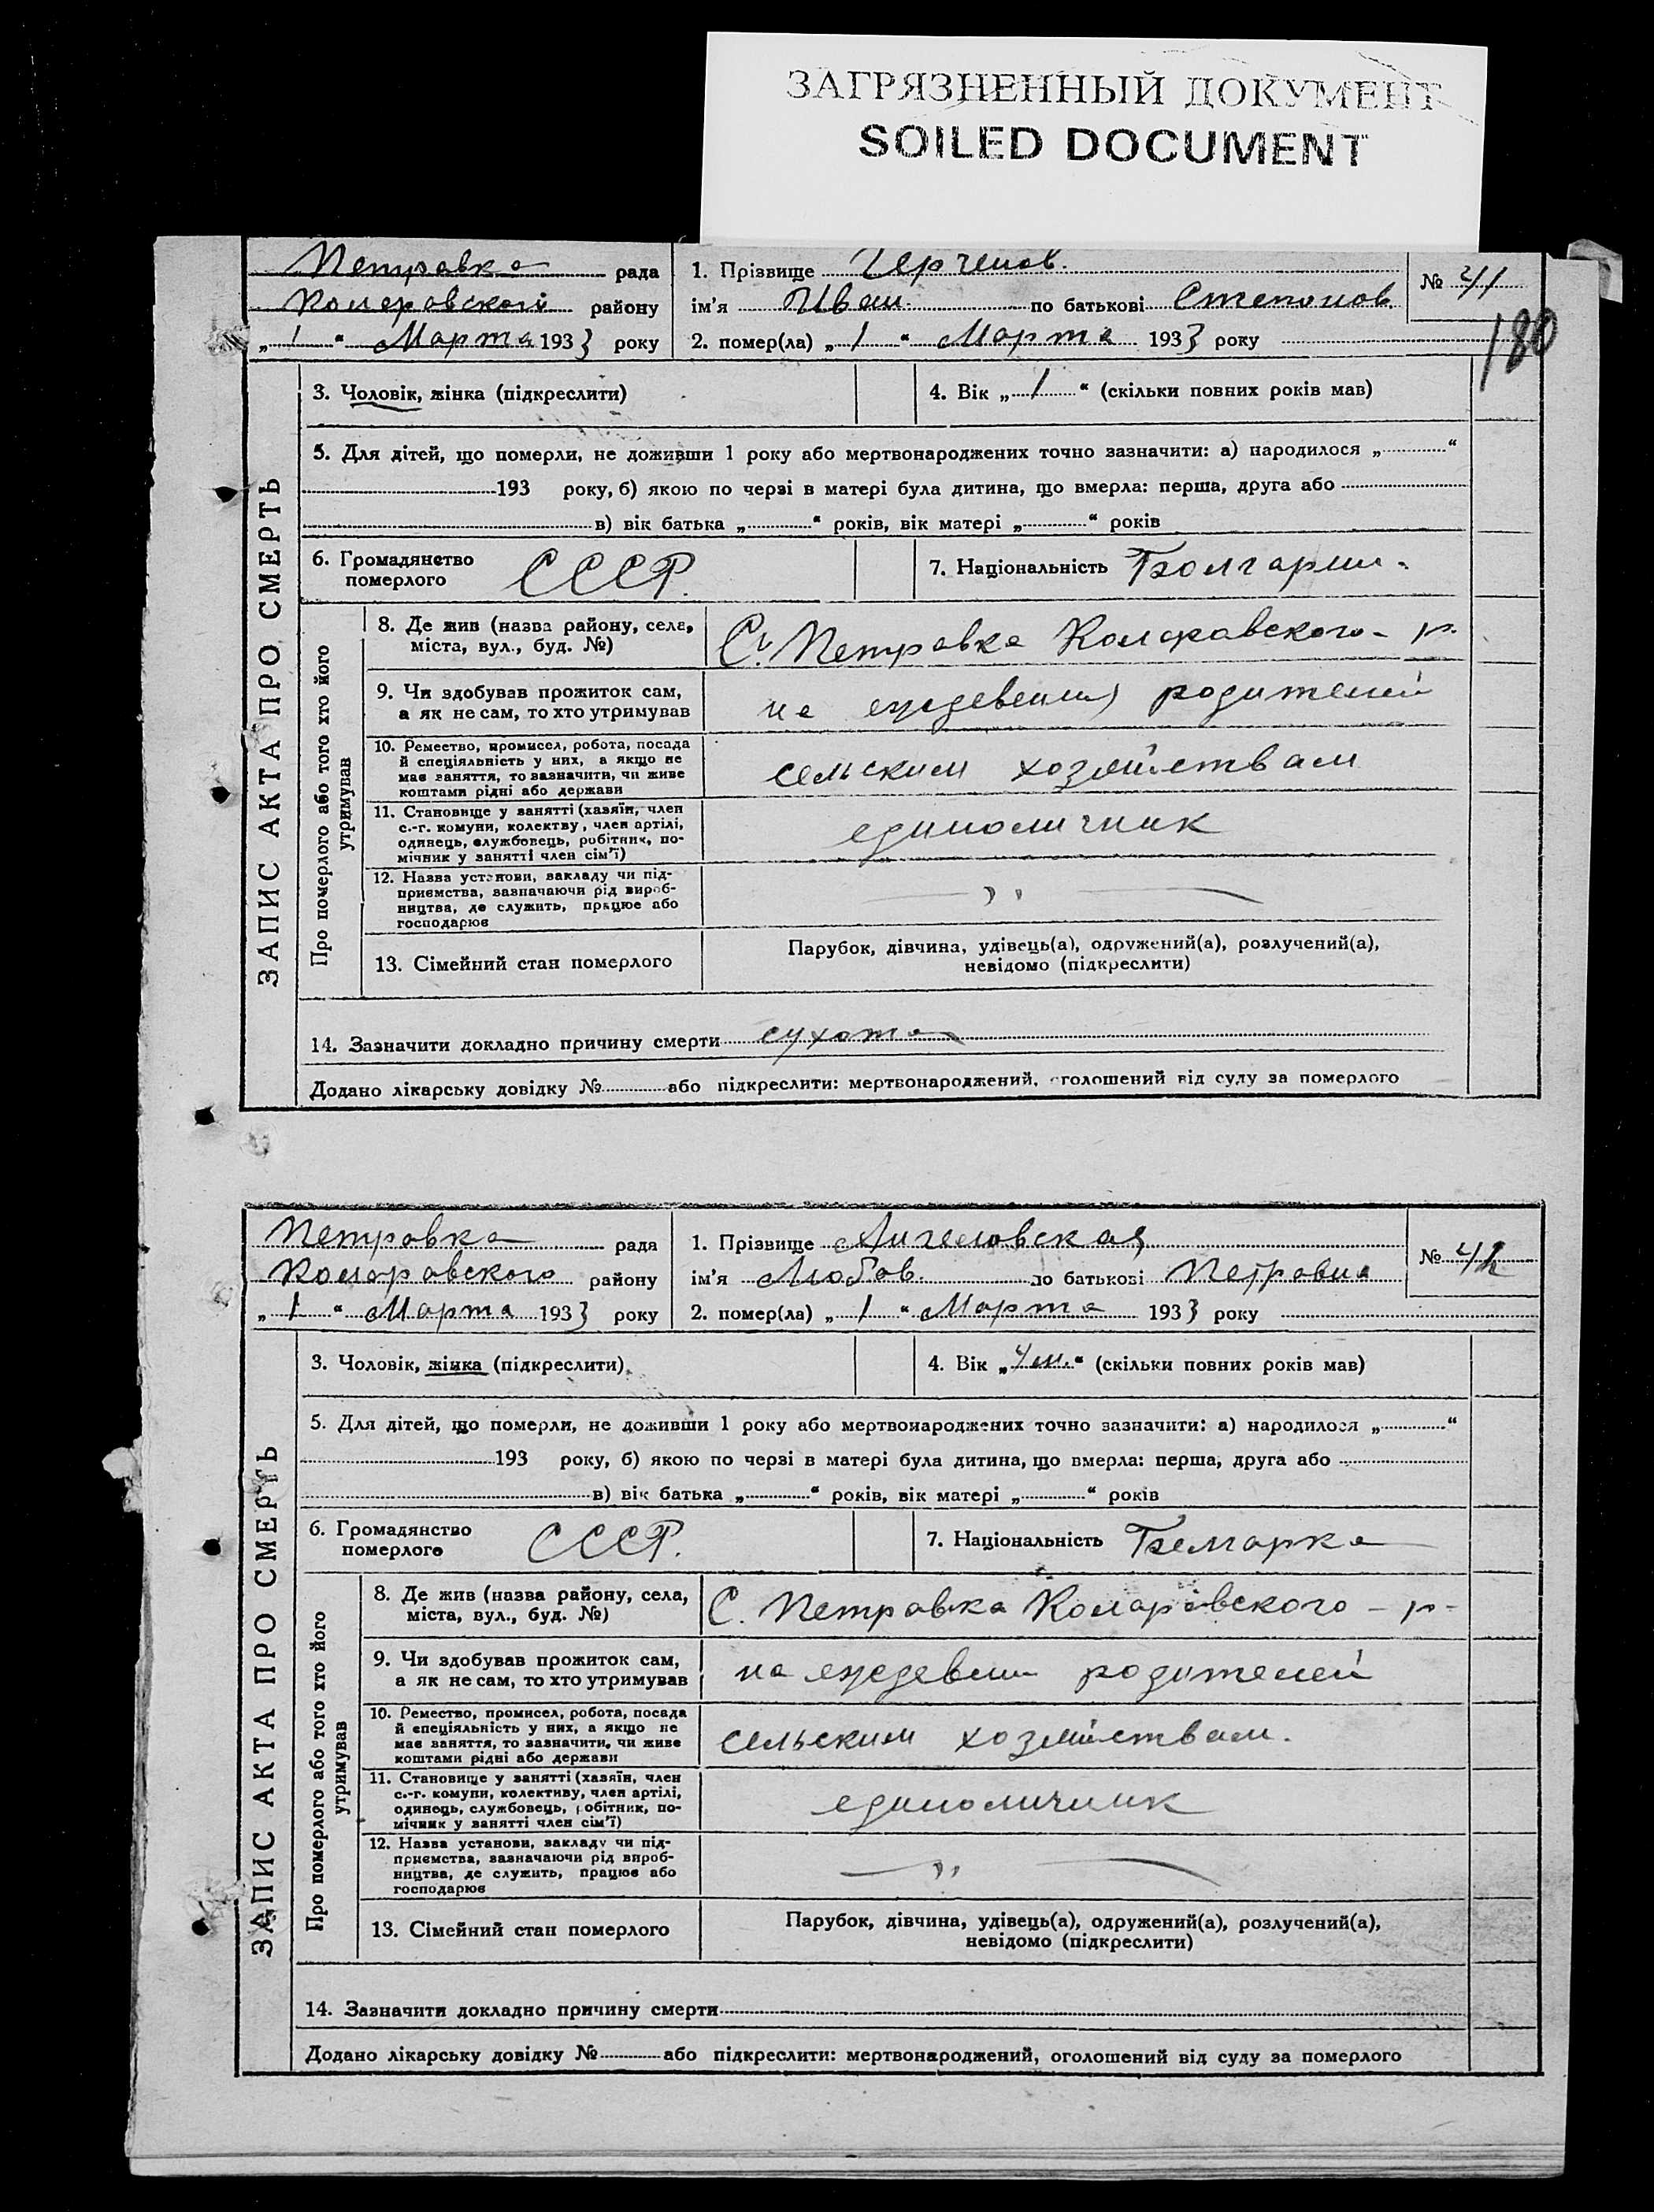 ЗАГРЯЗНЕННЫЙ ДОКУМЕНТ
SOILED DOCUMENT
Петровка рада
Комаровского району
„ 1 “ Марта 1933 року
1. Прізвище
ім'я Иван по батькові Степанов
2. помер(ла) „ 1 “ Марта 1933 року
№ 41
180
ЗАПИС АКТА ПРО СМЕРТЬ
3. Чоловік, жінка (підкреслити)
4. Вік „ 1 “ (скільки повних років мав)
5. Для дітей, що померли, не доживши 1 року або мертвонароджених точно зазначити: а) народилося „ “
193 року, б) якою по черзі в матері була дитина, що вмерла: перша, друга або
в) вік батька „ “ років, вік матері „ “ років
6. Громадянство
померлого
СССР.
7. Національність Болгарин.
Про померлого або того хто його
утримував
8. Де жив (назва району, села,
міста, вул., буд. №)
С. Петровка Комаровского - р.
9. Чи здобував прожиток сам,
а як не сам, то хто утримував
на еждевении родителей
10. Ремество, промисел, робота, посада
й спеціяльність у них, а якщо не
має заняття, то зазначити, чи живе
коштами рідні або держави
сельским хозяйствам
11. Становище у занятті (хазяїн, член
с.-г. комуни, колектву, член артілі,
одинець, службовець, робітник, по-
мічник у занятті член сім'ї)
единоличник
12. Назва установи, закладу чи під-
приємства, зазначаючи рід вироб-
ництва, де служить, працює або
господарює
— „ —
13. Сімейний стан померлого
Парубок, дівчина, удівець(а), одружений(а), розлучений(а),
невідомо (підкреслити)
14. Зазначити докладно причину смерти сухота
Додано лікарську довідку № або підкреслити: мертвонароджений, оголошений від суду за померлого
Петровка рада
Комаровского району
„ 1 “ Марта 1933 року
1. Прізвище Ангеловская
ім'я Любов. по батькові Петровна
2. помер(ла) „ 1 “ Марта 1933 року
№ 42
ЗАПИС АКТА ПРО СМЕРТЬ
3. Чоловік, жінка (підкреслити)
4. Вік „ 4 м. “ (скільки повних років мав)
5. Для дітей, що померли, не доживши 1 року або мертвонароджених точно зазначити: а) народилося „ “
193 року, б) якою по черзі в матері була дитина, що вмерла: перша, друга або
в) вік батька „ “ років, вік матері „ “ років
6. Громадянство
померлого
СССР.
7. Національність Болгарка
Про померлого або того хто його
утримував
8. Де жив (назва району, села,
міста, вул., буд. №)
С. Петровка Комаровского - р-
9. Чи здобував прожиток сам,
а як не сам, то хто утримував
на еждевени родителей
10. Ремество, промисел, робота, посада
й спеціяльність у них, а якщо не
має заняття, то зазначити, чи живе
коштами рідні або держави
сельским хозяйствам.
11. Становище у занятті (хазяїн, член
с.-г. комуни, колективу, член артілі,
одинець, службовець, робітник, по-
мічник у занятті член сім'ї)
единоличник
12. Назва установи, закладу чи під-
приємства, зазначаючи рід вироб-
ництва, де служить, працює або
господарює
— „ —
13. Сімейний стан померлого
Парубок, дівчина, удівець(а), одружений(а), розлучений(а),
невідомо (підкреслити)
14. Зазначити докладно причину смерти
Додано лікарську довідку № або підкреслити: мертвонароджений, оголошений від суду за померлого